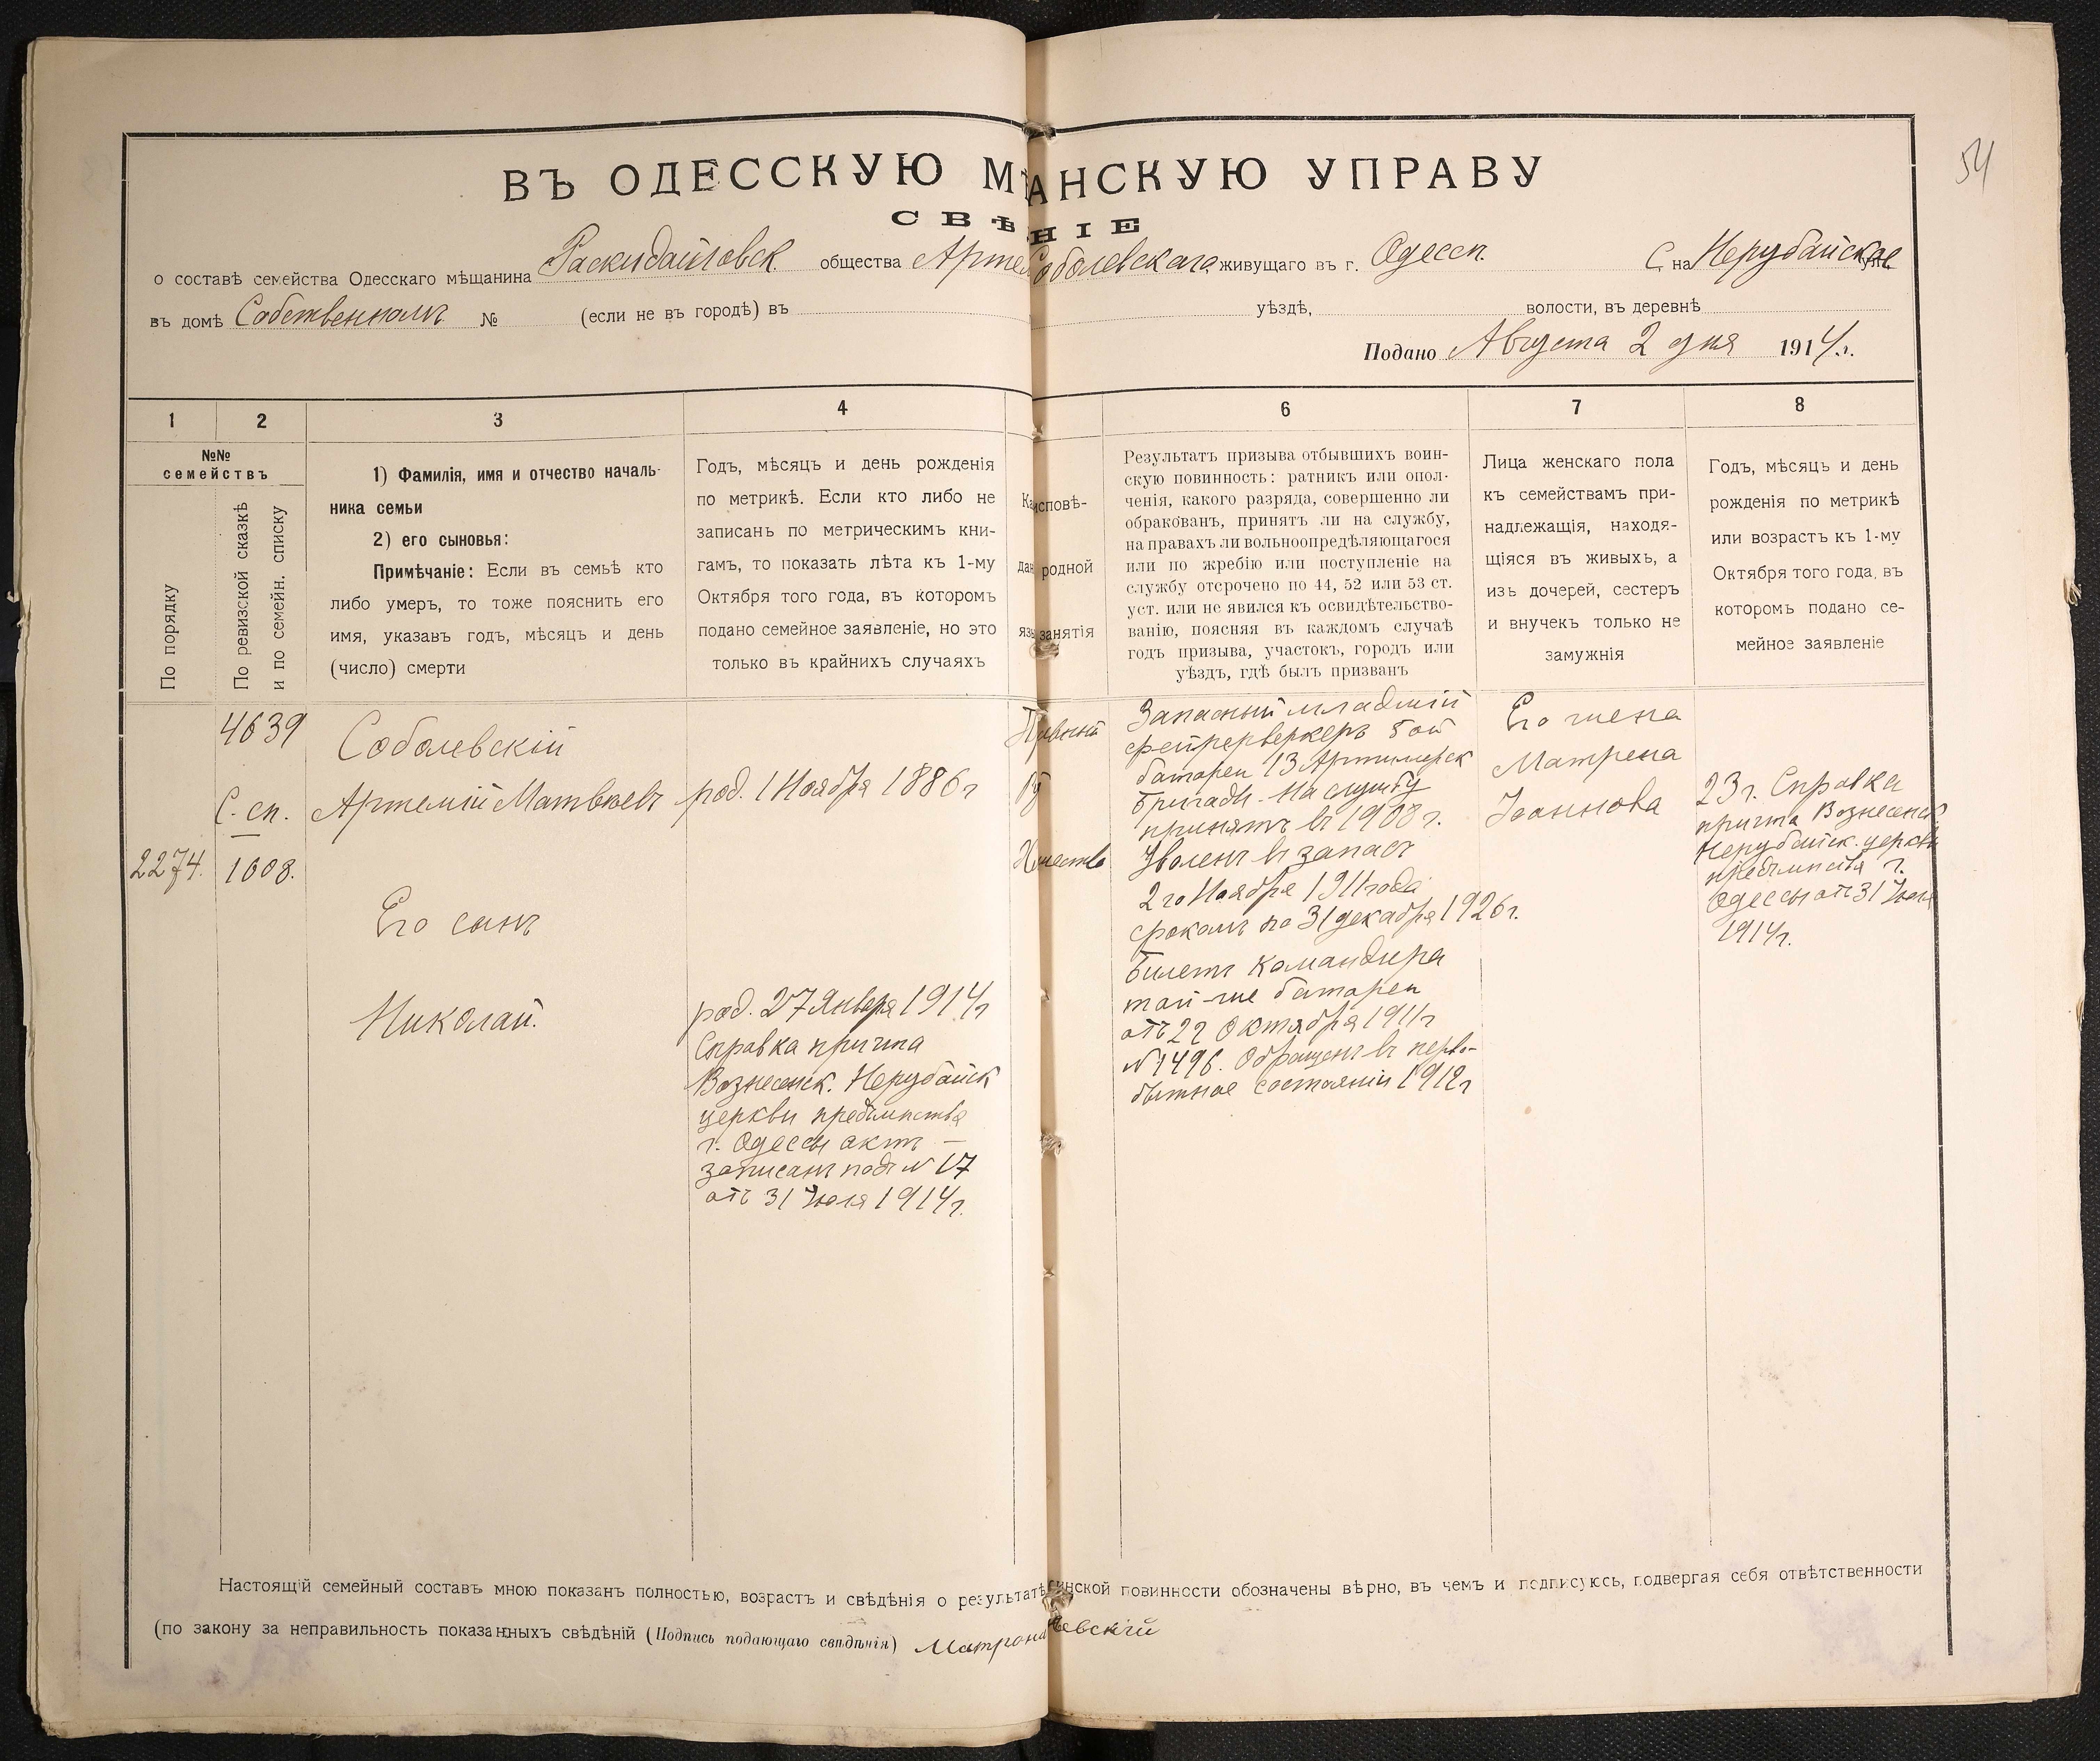 54
ВЪ ОДЕССКУЮ М АНСКУЮ УПРАВУ
СВѢ НІЕ
о составѣ семейства Одесскаго мѣщанина Раскидайловск. общества Артем Соболевскаго живущаго въ г. Одессп. С. на Нерубайское ул.
въ домѣ Собственномъ № (если не въ городѣ) въ уѣздѣ, волости, въ деревнѣ
Подано Августа 2 дня 1914 г.
1 2 3 4 6 7 8
№№
семействъ
По порядку
По ревизской сказкѣ
и по семейн. списку
1) Фамилія, имя и отчество началь-
ника семьи
2) его сыновья:
Примѣчаніе: Если въ семьѣ кто
либо умеръ, то тоже пояснить его
имя, указавъ годъ, мѣсяцъ и день
(число) смерти
Годъ, мѣсяцъ и день рожденія
по метрикѣ. Если кто либо не
записанъ по метрическимъ кни-
гамъ, то показать лѣта къ 1-му
Октября того года, въ которомъ
подано семейное заявленіе, но это
только въ крайнихъ случаяхъ
Ка исповѣ-
дан родной
язы занятія
Результатъ призыва отбывшихъ воин-
скую повинность: ратникъ или опол-
ченія, какого разряда, совершенно ли
обракованъ, принятъ ли на службу,
на правахъ ли вольноопредѣляющагося
или по жребію или поступленіе на
службу отсрочено по 44, 52 или 53 ст.
уст. или не явился къ освидѣтельство-
ванію, поясняя въ каждомъ случаѣ
годъ призыва, участокъ, городъ или
уѣздъ, гдѣ былъ призванъ
Лица женскаго пола
къ семействамъ при-
надлежащія, находя-
щіяся въ живыхъ, а
изъ дочерей, сестеръ
и внучекъ только не
замужнія
Годъ, мѣсяцъ и день
рожденія по метрикѣ
или возрастъ къ 1-му
Октября того года, въ
которомъ подано се-
мейное заявленіе
4639
С. сп.
2274. 1608.
Соболевскій
Артемій Матвѣевъ
Его сынъ
Николай.
род. 1 Ноября 1886 г
род. 27 Января 1914 г
Справка причта
Вознесенск. Нерубайск
церкви предмѣстья
г. Одессы актъ —
записанъ подъ № 17
отъ 31 Іюля 1914 г.
Запасный младшій
фейерверкеръ 5ой
батареи 13 Артиллерск
бригады. На службу
принятъ въ 1908 г.
Уволенъ въ запасъ
2го Ноября 1911 года
срокомъ по 31 декабря 1926 г.
Билетъ командира
той-же батареи
отъ 22 Октября 1911 г
№ 1496. Обращенъ въ перво-
бытное состояніи 1912 г
Его жена
Матрена
Іоаннова
23 г. Справка
причта Вознесенск
Нерубайск. церкви
предмѣстья г.
Одессы отъ 31 Іюля
1914 г.
Настоящій семейный составъ мною показанъ полностью, возрастъ и свѣдѣнія о результатѣ инской повинности обозначены вѣрно, въ чемъ и подписуюсь, подвергая себя отвѣтственности
(по закону за неправильность показанныхъ свѣдѣній (Подпись подающаго свѣдѣнія) Матрона евскій